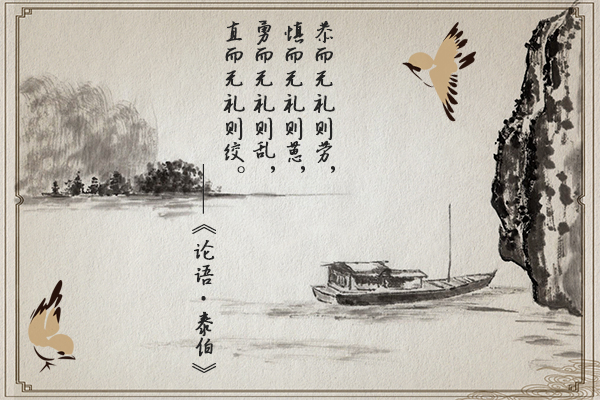 恭而无礼则劳，
慎而无礼则葸，
勇而无礼则乱，
直而无礼则绞。
——《论语·泰伯》